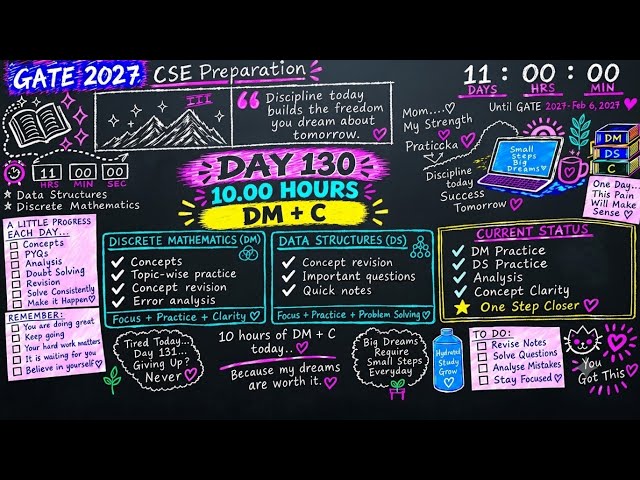 GATE 2027 CSE Preparation
III
❝ Discipline today
builds the freedom
you dream about
tomorrow. ♡
11 : 00 : 00
DAYS HRS MIN
Until GATE 2027-Feb 6, 2027♡
Mom....♡
My Strength
Praticcka ♡
Discipline
today
Success
Tomorrow ♡
Small
Steps
Big
Dreams♡
DM
DS
C
One Day...
This Pain
Will Make
Sense ♡
11 : 00 : 00
HRS MIN SEC
★ Data Structures
★ Discrete Mathematics
DAY 130
10.00 HOURS
DM + C
A LITTLE PROGRESS
EACH DAY...
☐ Concepts
☐ PYQs
☐ Analysis
☐ Doubt Solving
☐ Revision
☐ Solve Consistently
☐ Make it Happen♡
REMEMBER:
☐ You are doing great
☐ Keep going
☐ Your hard work matters
☐ It is waiting for you
☐ Believe in yourself♡
DISCRETE MATHEMATICS (DM)
✓ Concepts
✓ Topic-wise practice
✓ Concept revision
✓ Error analysis
Focus + Practice + Clarity ♡
DATA STRUCTURES (DS)
✓ Concept revision
✓ Important questions
✓ Quick notes
Focus + Practice + Problem Solving♡
CURRENT STATUS
✓ DM Practice
✓ DS Practice
✓ Analysis
✓ Concept Clarity
★ One Step Closer ♡
Tired Today...
Day 131...
Giving Up?
Never ♡
10 hours of DM + C
today.. ♡
Because my dreams
are worth it. ♡
Big Dreams
Require
Small Steps
Everyday
Hydrated
Study
Grow
♡
TO DO:
☐ Revise Notes
☐ Solve Questions
☐ Analyse Mistakes
☐ Stay Focused♡
You
Got This ♡